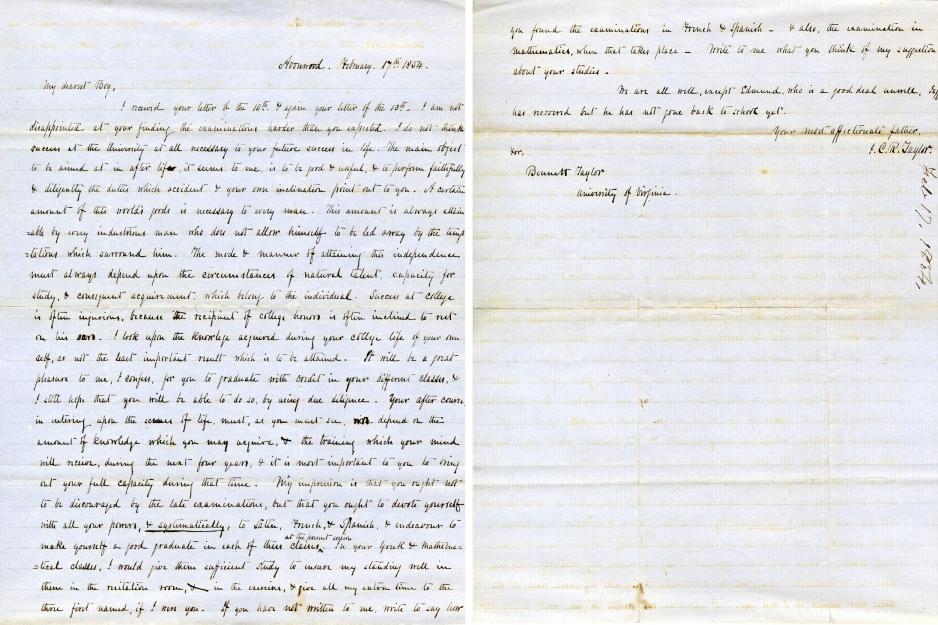 Avonwood. February. 17th 1854.
My dearest Boy,
I received your letter of the 10th. & again your letter of the 13th. I am not
disappointed at your finding the examinations harder than you expected. I do not think
success at the University at all necessary to your future success in life. The main object
to be aimed at in after life, it seems to me, is to be good & useful, & to perform faithfully
& diligently the duties which accident & your own inclination point out to you. A certain
amount of this world's goods is necessary to every man. This amount is always attain
=able by every industrious man who does not allow himself to be led away by the temp
=tations which surround him. The mode & manner of attaining this independence
must always depend upon the circumstances of natural talent, capacity for
study, & consequent acquirement, which belong to the individual. Success at college
is often injurious, because the recipient of college honors is often inclined to rest
on his oars. I look upon the knowledge acquired during your college life of your own
self, as not the least important result which is to be attained. It will be a great
pleasure to me, I confess, for you to graduate with credit in your different classes, &
I still hope that you will be able to do so, by using due diligence. Your after course,
in entering upon the scenes of life, must, as you must see, depend on the
amount of knowledge which you may acquire, & the training which your mind
will receive, during the next four years, & it is most important to you to bring
out your full capacity during that time. My impression is that you ought not
to be discouraged by the late examinations, but that you ought to devote yourself
with all your powers, & systematically, to Latin, French, & Spanish, & endeavour to
make yourself a good graduate in each of these classes at the present session. In your Greek & Mathema=
=tical classes, I would give them sufficient study to insure my standing well in
them in the recitation room, & in the exercises, & give all my extra time to the
three first named, if I were you. If you have not written to me, write to say how
you found the examinations in French & Spanish - & also, the examination in
mathematics, when that takes place - Write to me what you think of my suggestion
about your studies -
We are all well, except Edmund, who is a good deal unwell, Jeff
has recovered but he has not gone back to school yet.
Your most affectionate father,
J. C. R. Taylor.
For,
Bennett Taylor
University of Virginia.
Feb. 17, 1854.